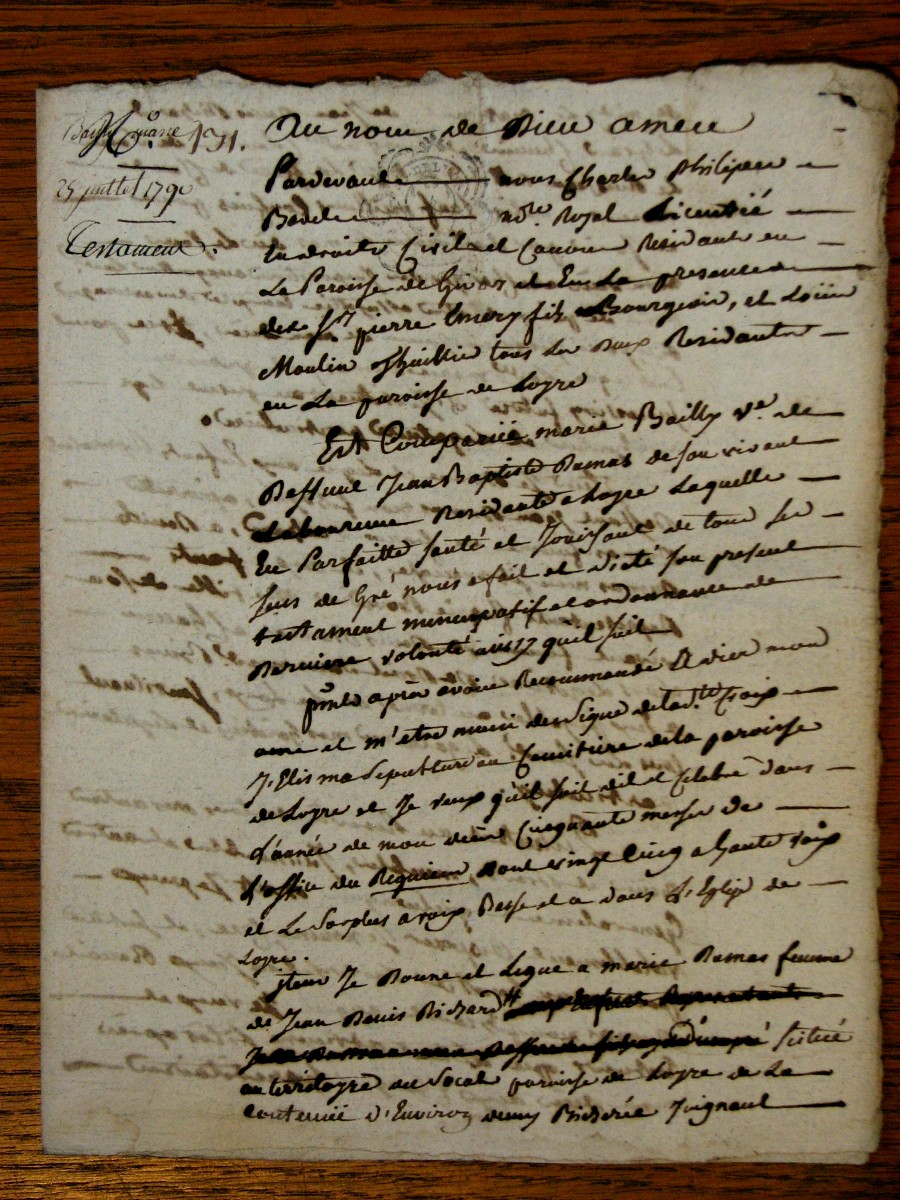 131.
25 juillet 1790
Testament.
Au nom de Dieu amen
Pardevant nous Charle Philipee
not.re Royal Licentié
en droits Civil et Canon Residant en
La Paroisse de et En La presence
des Srs pierre Emery fils Bourgeois, et
Moulin Thuillie tous Les deux Residants
en La paroisse de Loyre
Est Comparüe marie Bailly ve. de
Deffunt Jean Baptiste Damas de son vivant
Laboureur Residante a Loyre Laquelle
En Parfaitte santé et Jouissant de tous ses
sens de Gré nous a fait et dicté son present
testament nuncupatif et ordonnance de
Derniere volonté ainsy qu'il suit
pmt. apres avoir Recommandé A dieu mon
ame et m'etre muni du Signe de la Ste. Croix
J'Elis ma Sepulture au Cemitiere de la paroisse
de Loyre et Je veux qu'il soit dit et Celebré dans
L'année de mon deces Cinquante messes de
L'office du Requiem dont vingt Cinq a haute voix
et Le Surplus a voix Basse et a dans L'Eglise de
Loyre.
jtem Je Donne et Legue a marie Damas femme
de Jean Denis Richard
Scitué
au territoyre du Socal paroisse de Loyre de La
contenüe d'Environ Joignant